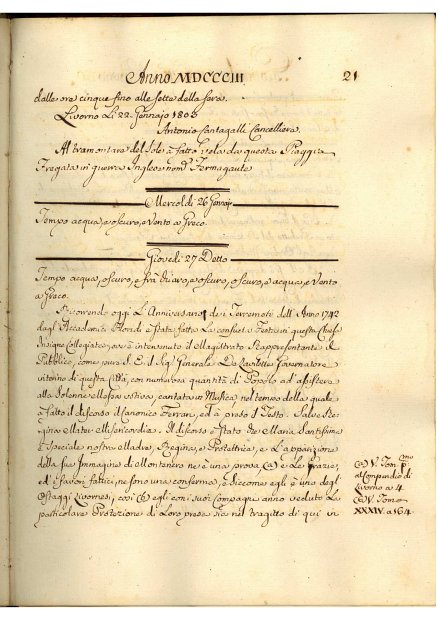 Anno MDCCCIII
21
dalle ore cinque fino alle sette della sera.
Livorno Li 22. Gennajo 1803
Antonio Santagalli Cancelliere.
Al tramontare del Sole à fatto vela da questa Spiaggia
Fregata in guerra Inglese nom
Mercoldì 26 Gennajo
Tempo acqua, e oscuro, e Vento a Greco.
Giovedì 27 Detto
Tempo acqua, oscuro, e frà chiaro, e oscuro, oscuro, e acqua, e Vento
a Greco.
Ricorrendo oggi L'Anniversario de i Terremoti dell'Anno 1742
dagl'Accademici Floridi è stata fatta La consueta Festa in questa Chiesa
Insigne Collegiata, ove è intervenuto il Magistrato Rappresentante il
Pubblico, come pure S. E. il Sig.e Generale De Governatore
interino di questa Città, con numerosa quantità di Popolo ad assistere
alla Solenne Messa votiva, cantata in Musica, nel tempo della quale
à fatto il discorso il Canonico Ferrari, ed à preso il Testo. Salve Re-
gina Mater Misericordia. Il discorso è stato che Maria Santissima
è Speciale nostra Madre, Regina, e Protettrice, e L'apparizione
della sua Immagine di Montenero ne è una prova (a) e Le Grazie,
ed i favori fattici, ne sono una conferma, e siccome egli è uno degl'
Ostaggi Livornesi, così (b) egli con i suoi Compagni anno veduto La
particolare Protezione di Loro presa sia nel tragitto di qui in
(a) V. Tom. p.mo
al Compendio di
Livorno a 4.
(b) V. Tomo
XXXIV. a 164.